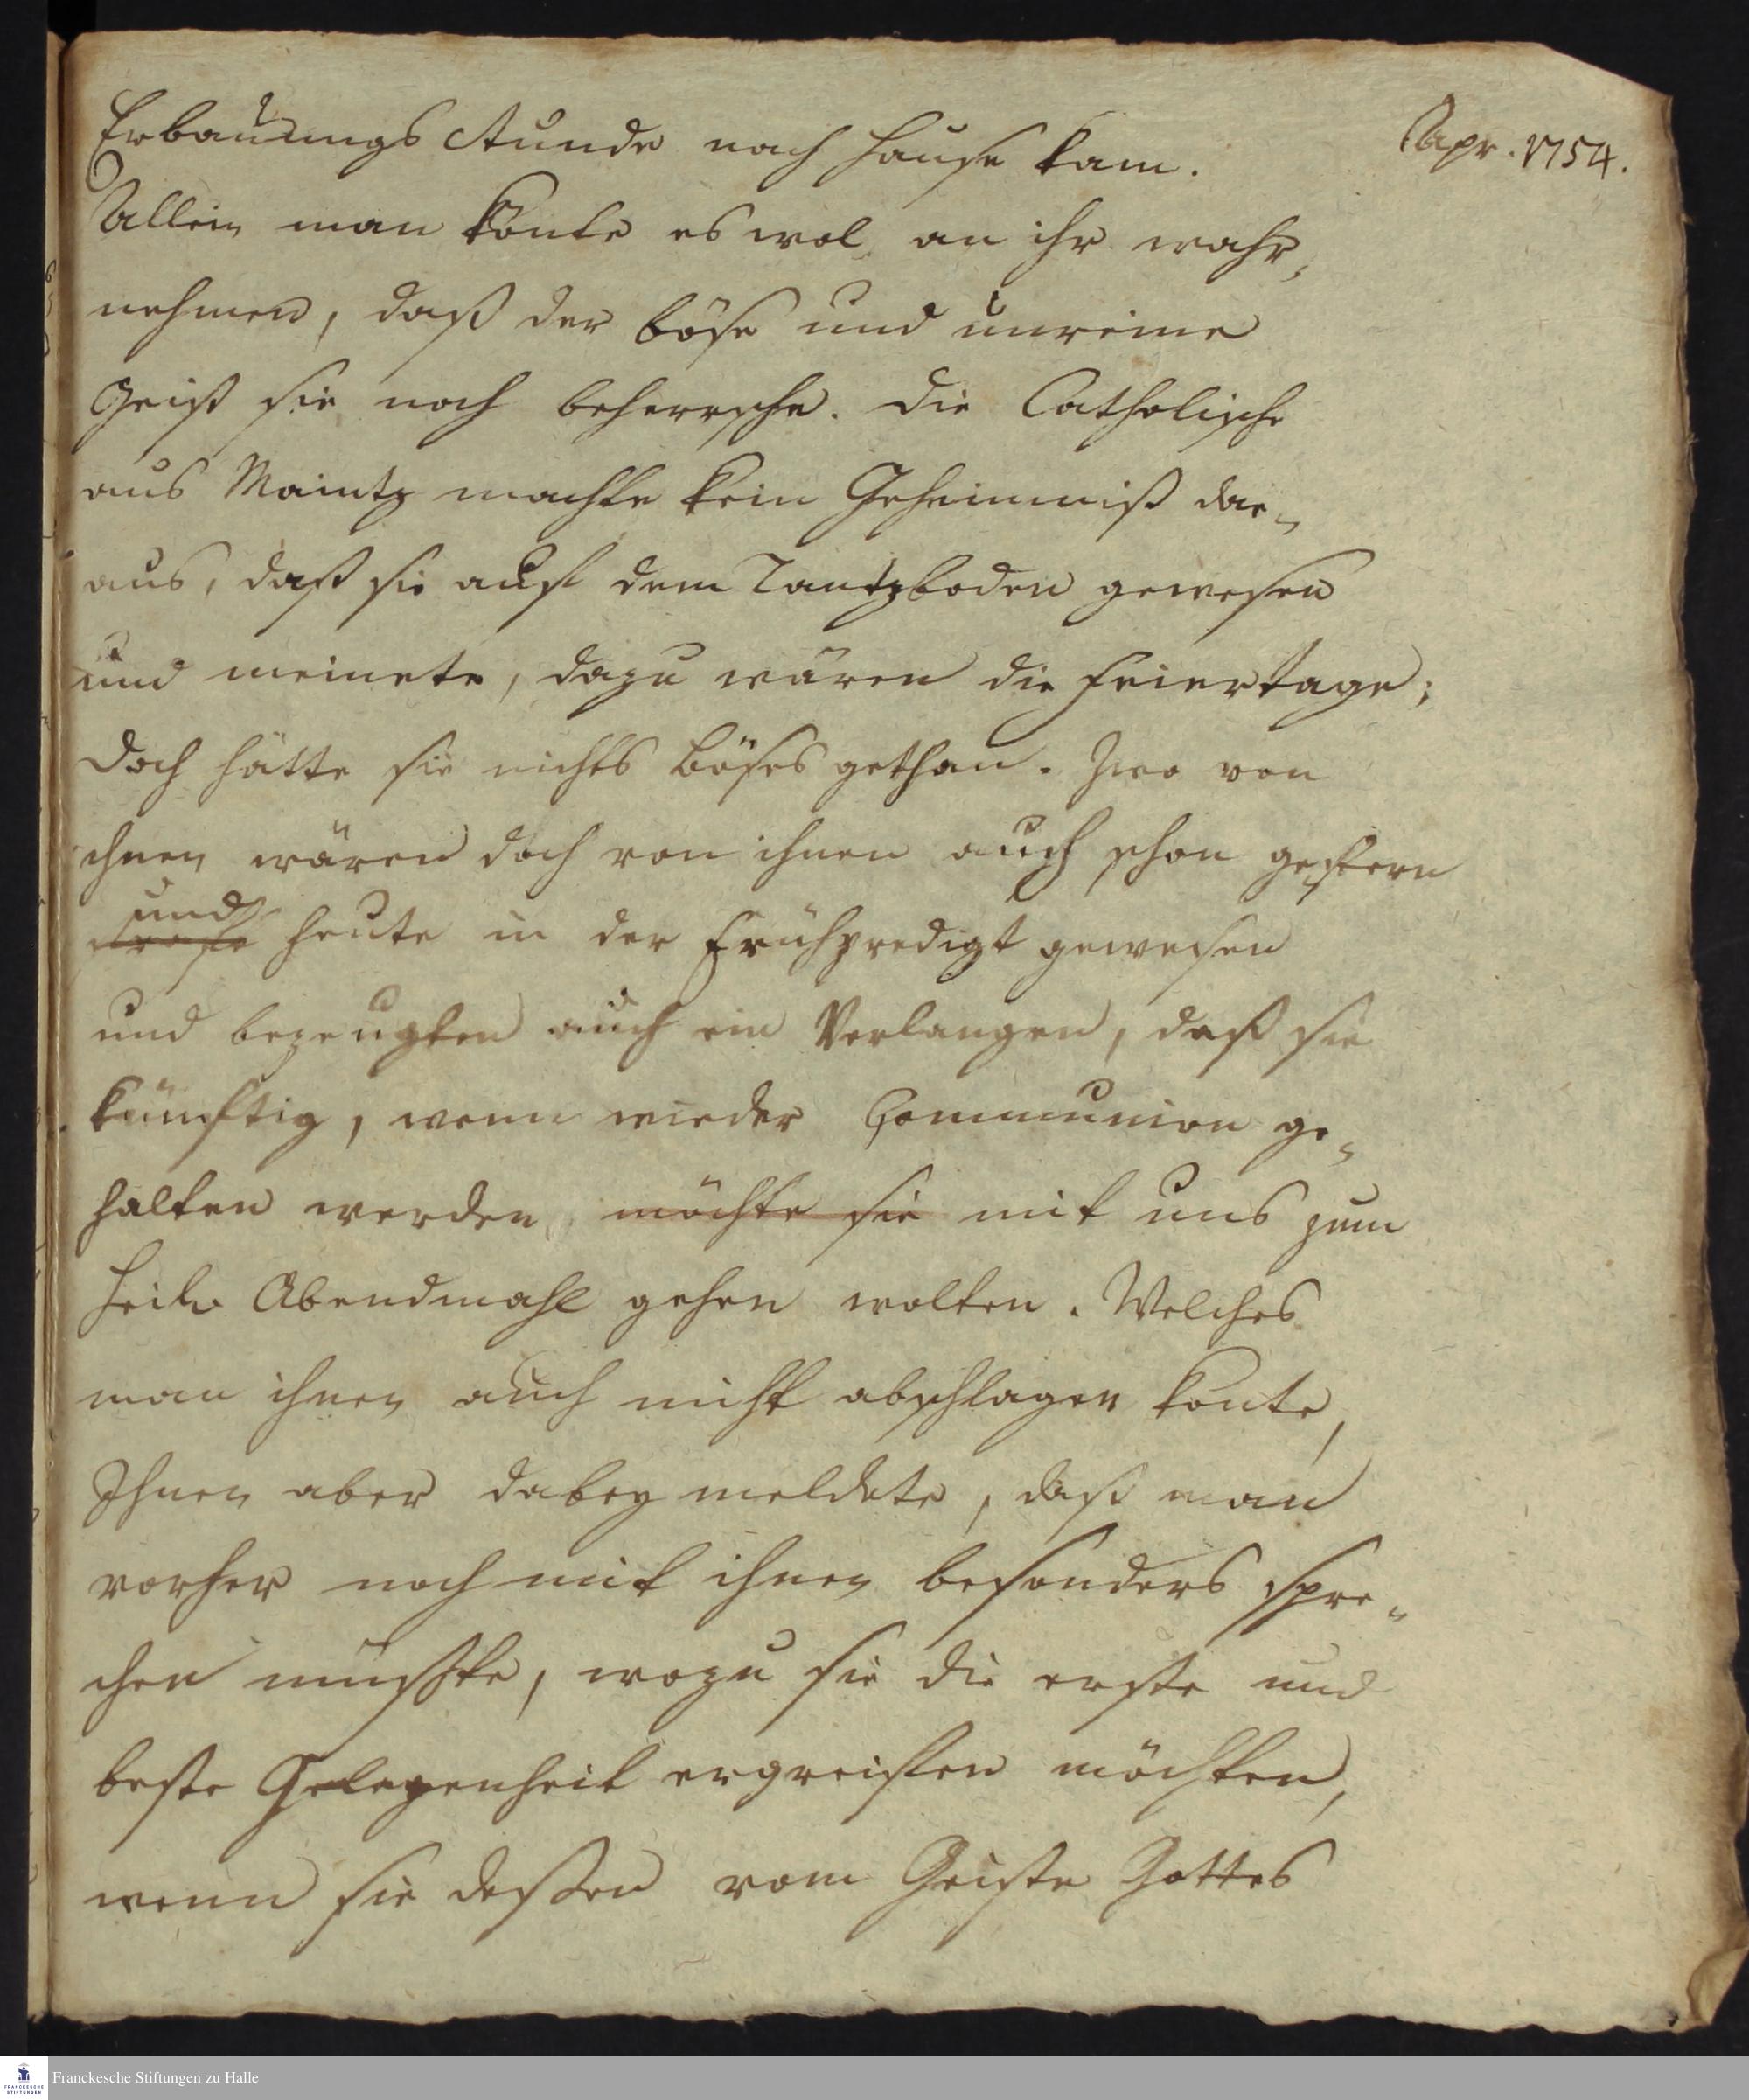 Apr. 1754.
Erbauungs Stunde nach Hause kam.
Allein man konte es wol an ihr wahr-
nehmen, daß der böse und unreine
Geist sie noch beherrsche. Die Catholische
aus Maintz machte kein Geheimniß dar-
aus, daß sie auf dem Tantzboden gewesen
und meinete, dazu wären die Feiertage;
doch hätte sie nichts böses gethan. Zwo von
ihnen wären doch von ihnen auch schon gestern
und
heute in der Frühpredigt gewesen
und bezeugten auch ein Verlangen, daß sie
künftig, wenn wieder Communion ge-
halten werden, möchte sie mit uns zum
Heil. Abendmahl gehen wolten. Welches
man ihnen auch nicht abschlagen konte,
Ihnen aber dabey meldete, daß man
vorher noch mit ihnen besonders spre-
chen müsste, wozu sie die erste und
beste Gelegenheit ergreiffen möchten,
wenn sie deßen vom Geiste Gottes
Franckesche Stiftungen zu Halle